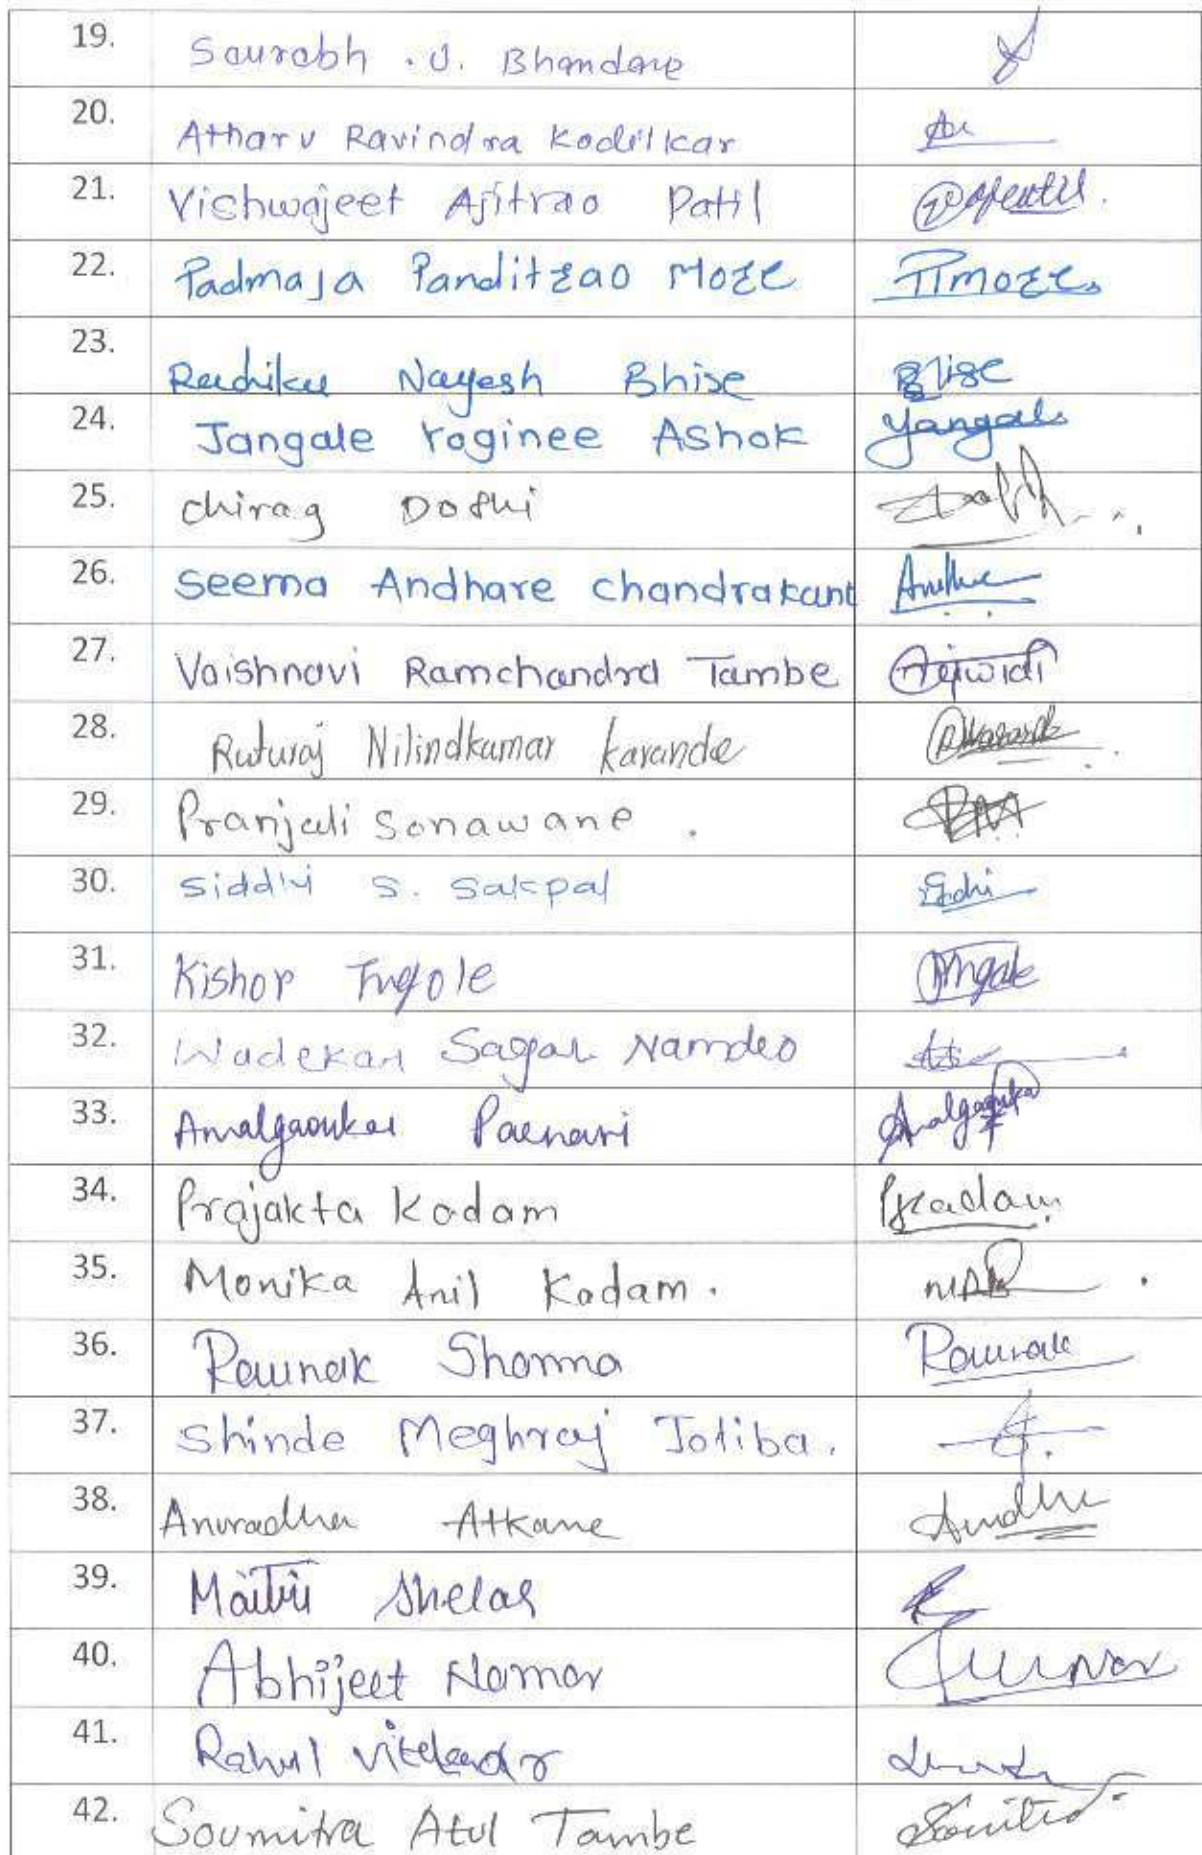 19. Saurabh . U. Bhandare
20. Atharv Ravindra Kodilkar
21. Vishwajeet Ajitrao Patil
22. Padmaja Panditrao More PPmore
23. Radhika Nayesh Bhise Bhise
24. Jangale Yoginee Ashok Jangale
25. Chirag Doshi
26. Seema Andhare chandrakant
27. Vaishnavi Ramchandra Tambe
28. Ruturaj Nilindkumar Karande
29. Pranjali Sonawane .
30. Siddhi S. Sakpal
31. Kishor Ingole
32. Wadekar Sagar Namdeo
33. Amalgaonkar Amalgaonkar
34. Prajakta Kadam Pkadam
35. Monika Anil Kadam. MAK
36. Raunak Sharma Raunak
37. Shinde Meghraj Jotiba.
38. Anuradha Atkane
39. Maitri Shelar
40. Abhijeet
41. Rahul
42. Soumitra Atul Tambe